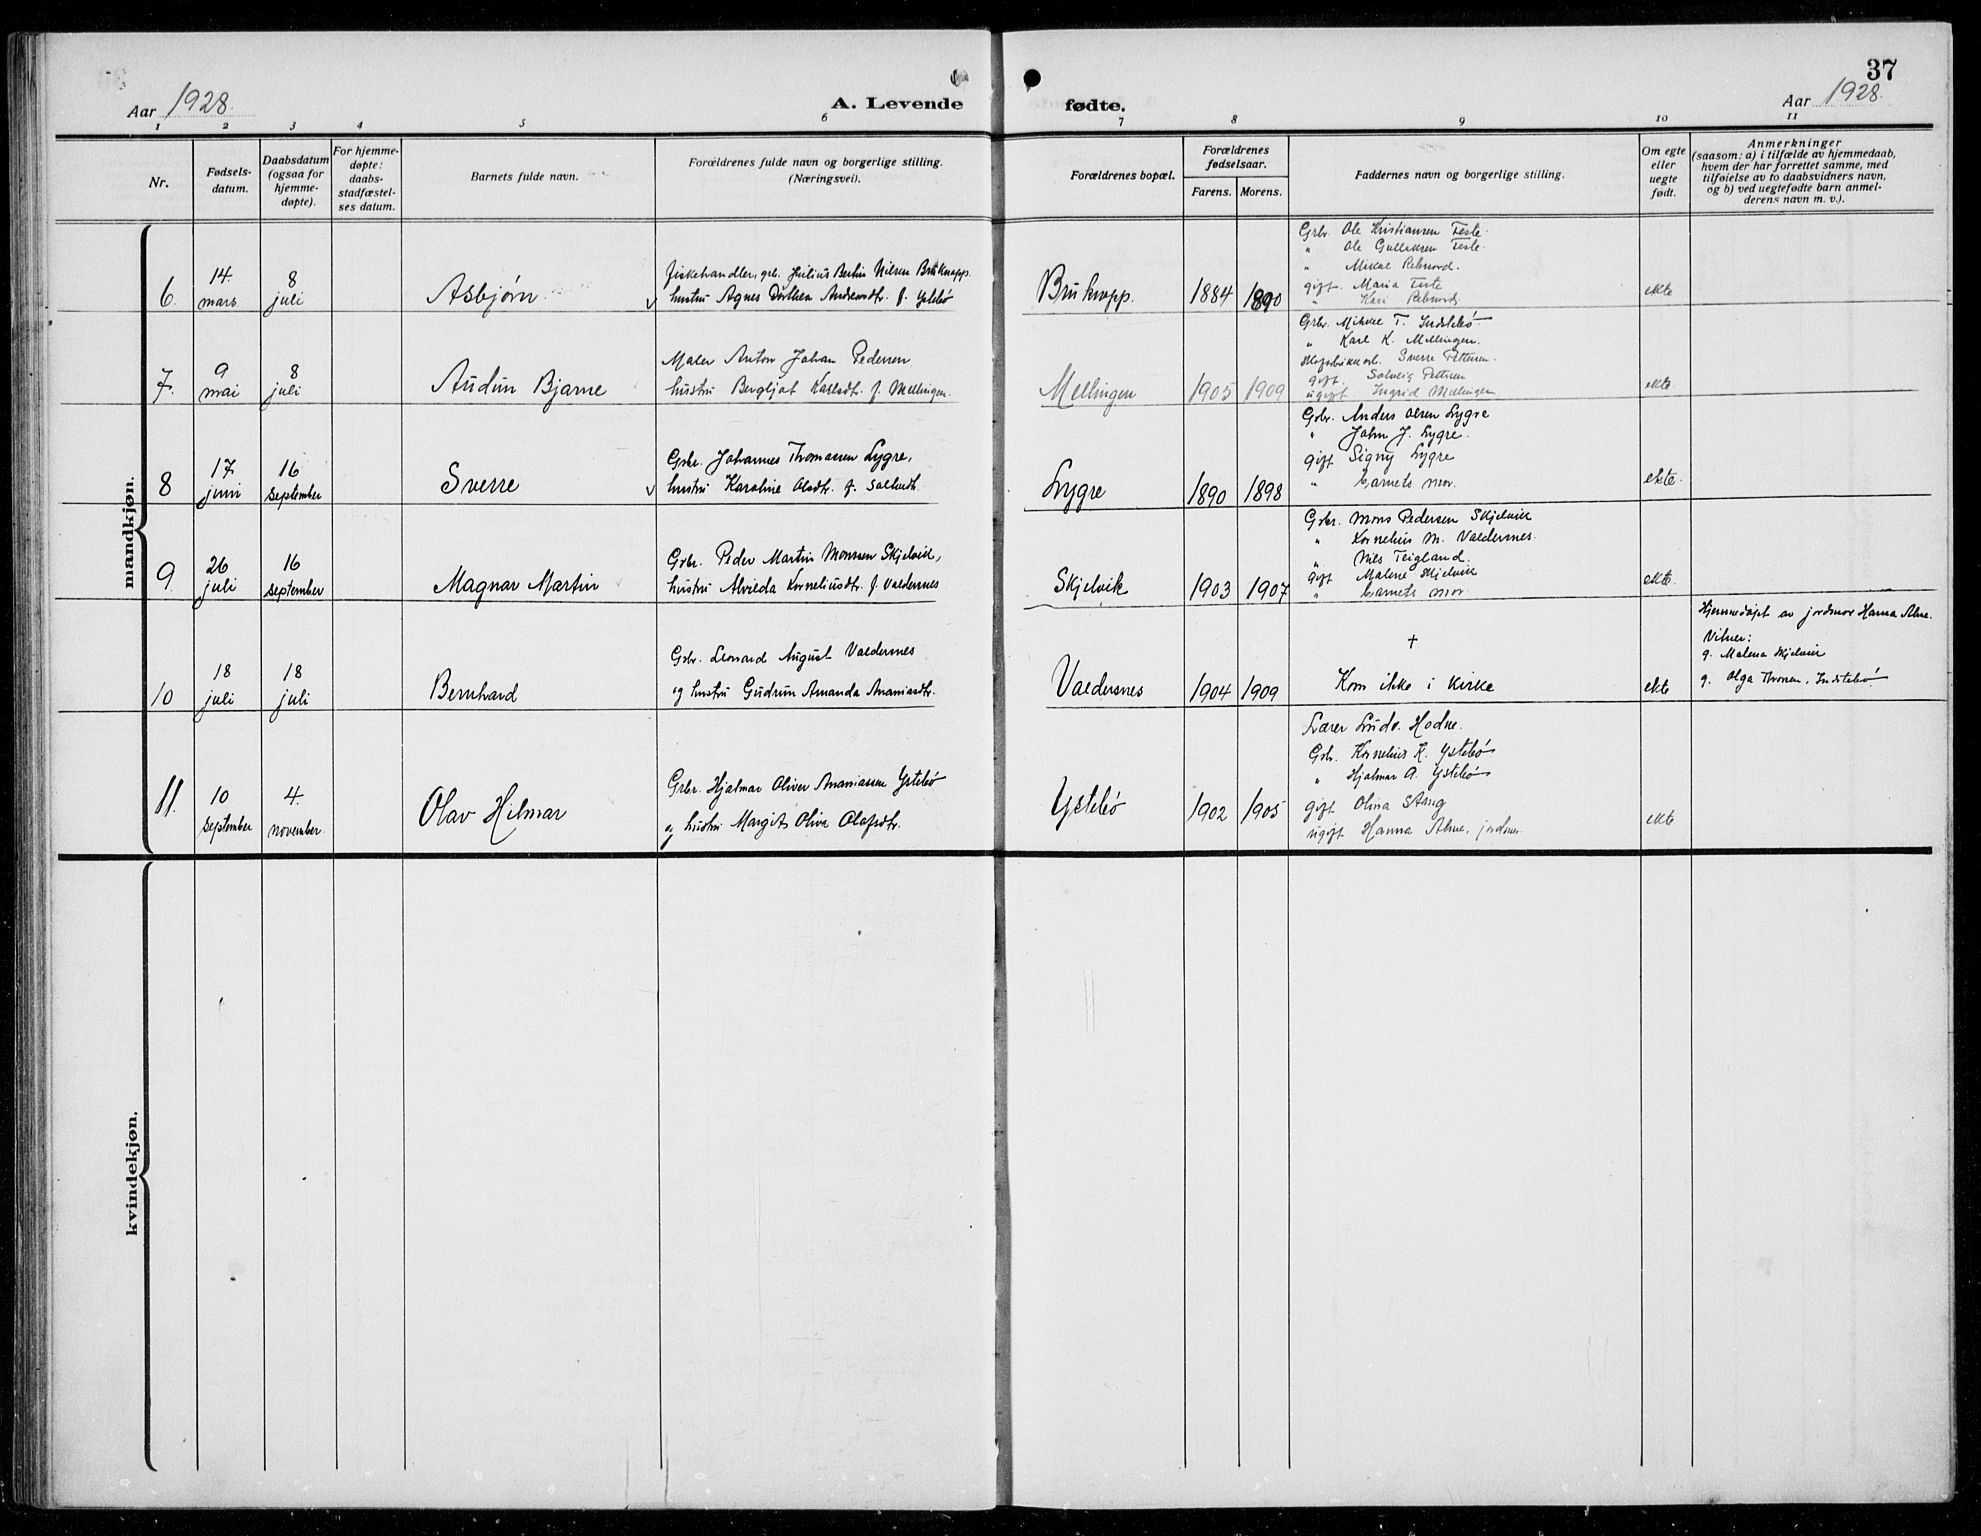 37
Aar 1928.
A. Levende
fødte.
Aar 1928.
1 2 3 4 5 6 7 8 9 10 11
Nr.
Fødsels-
datum.
Daabsdatum
(ogsaa for
hjemme-
døpte).
For hjemme-
døpte:
daabs-
stadfæstel-
ses datum.
Barnets fulde navn.
Forældrenes fulde navn og borgerlige stilling.
(Næringsvei).
Forældrenes bopæl.
Forældrenes
fødselsaar.
Farens. Morens.
Faddernes navn og borgerlige stilling.
Om egte
eller
uegte
født.
Anmerkninger
(saasom: a) i tilfælde av hjemmedaab,
hvem der har forrettet samme, med
tilføielse av to daabsvidners navn,
og b) ved uegtefødte barn anmel-
derens navn m. v.).
mandkjøn.
6.
14.
mars
8
juli
Asbjørn
Fiskehandler, grb. Julius Bertin Nilsen Bruknapp.
hustru Agnes Dorthea Andreasdtr. f. Ystebø
Bruknapp.
1884
1890
Grbr. Ole Kristiansen Teste.
" Ole Gulliksen Teste.
" Mikal Rebnord.
gift. Maria Teste
" Kari Rebnord.
ekte
7.
9
mai
8
juli
Audun Bjarne
Maler Anton Johan Pedersen
hustru Bergljot Karlsdtr. f. Mellingen.
Mellingen
1905
1909
Grbr. Mikkel T. Indstebø
" Karl K. Mellingen.
Sverre Pettersen.
gift. Solveig Pettersen
ugift Ingrid Mellingen
ekte
8
17.
juni
16
september
Sverre
Grbr. Johannes Thomassen Lygre,
hustru Karoline Olsdtr. f.
Lygre
1890
1898
Grbr. Anders Olsen Lygre
" John J. Lygre.
gift Signy Lygre
" barnets mor.
ekte.
9.
26
juli
16
september
Magnar Martin
Grbr. Peder Martin Monssen Skjelvik,
hustru Alvilda Korneliusdtr. f. Valdersnes
Skjelvik
1903
1907
Grbr. Mons Pedersen Skjelvik
" Kornelius M. Valdersnes.
" Nils Teigland.
gift Malene Skjelvik
" barnets mor.
ekte.
10
18
juli
18
juli
Bernhard
Grbr. Leonard August Valdersnes
og hustru Gudrun Amanda Ananiasdtr.
Valdersnes
1904
1909
+
Kom ikke i kirke
ekte
Hjemmedøpt av jordmor Hanna Alne.
Vitner:
g. Malena Skjelvik
g. Olga Thronsen, Indstebø
11.
10
september
4.
november.
Olav Hilmar
Grbr. Hjalmar Oliver Ananiassen Ystebø
og hustru Margit Oliva Olafsdtr.
Ystebø
1902
1905
Lærer Ludv. Hodne.
Grb. Kornelius K. Ystebø
" Hjalmar A. Ystebø
gift Olina Stang
ugift Hanna Alne, jordmor
ekte.
kvindekjøn.